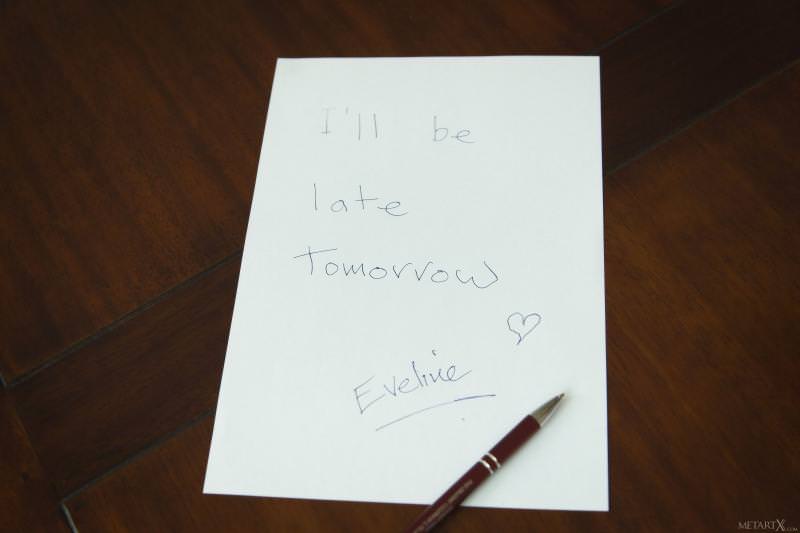 I'll be
late
Tomorrow
Eveline
METARTX.COM